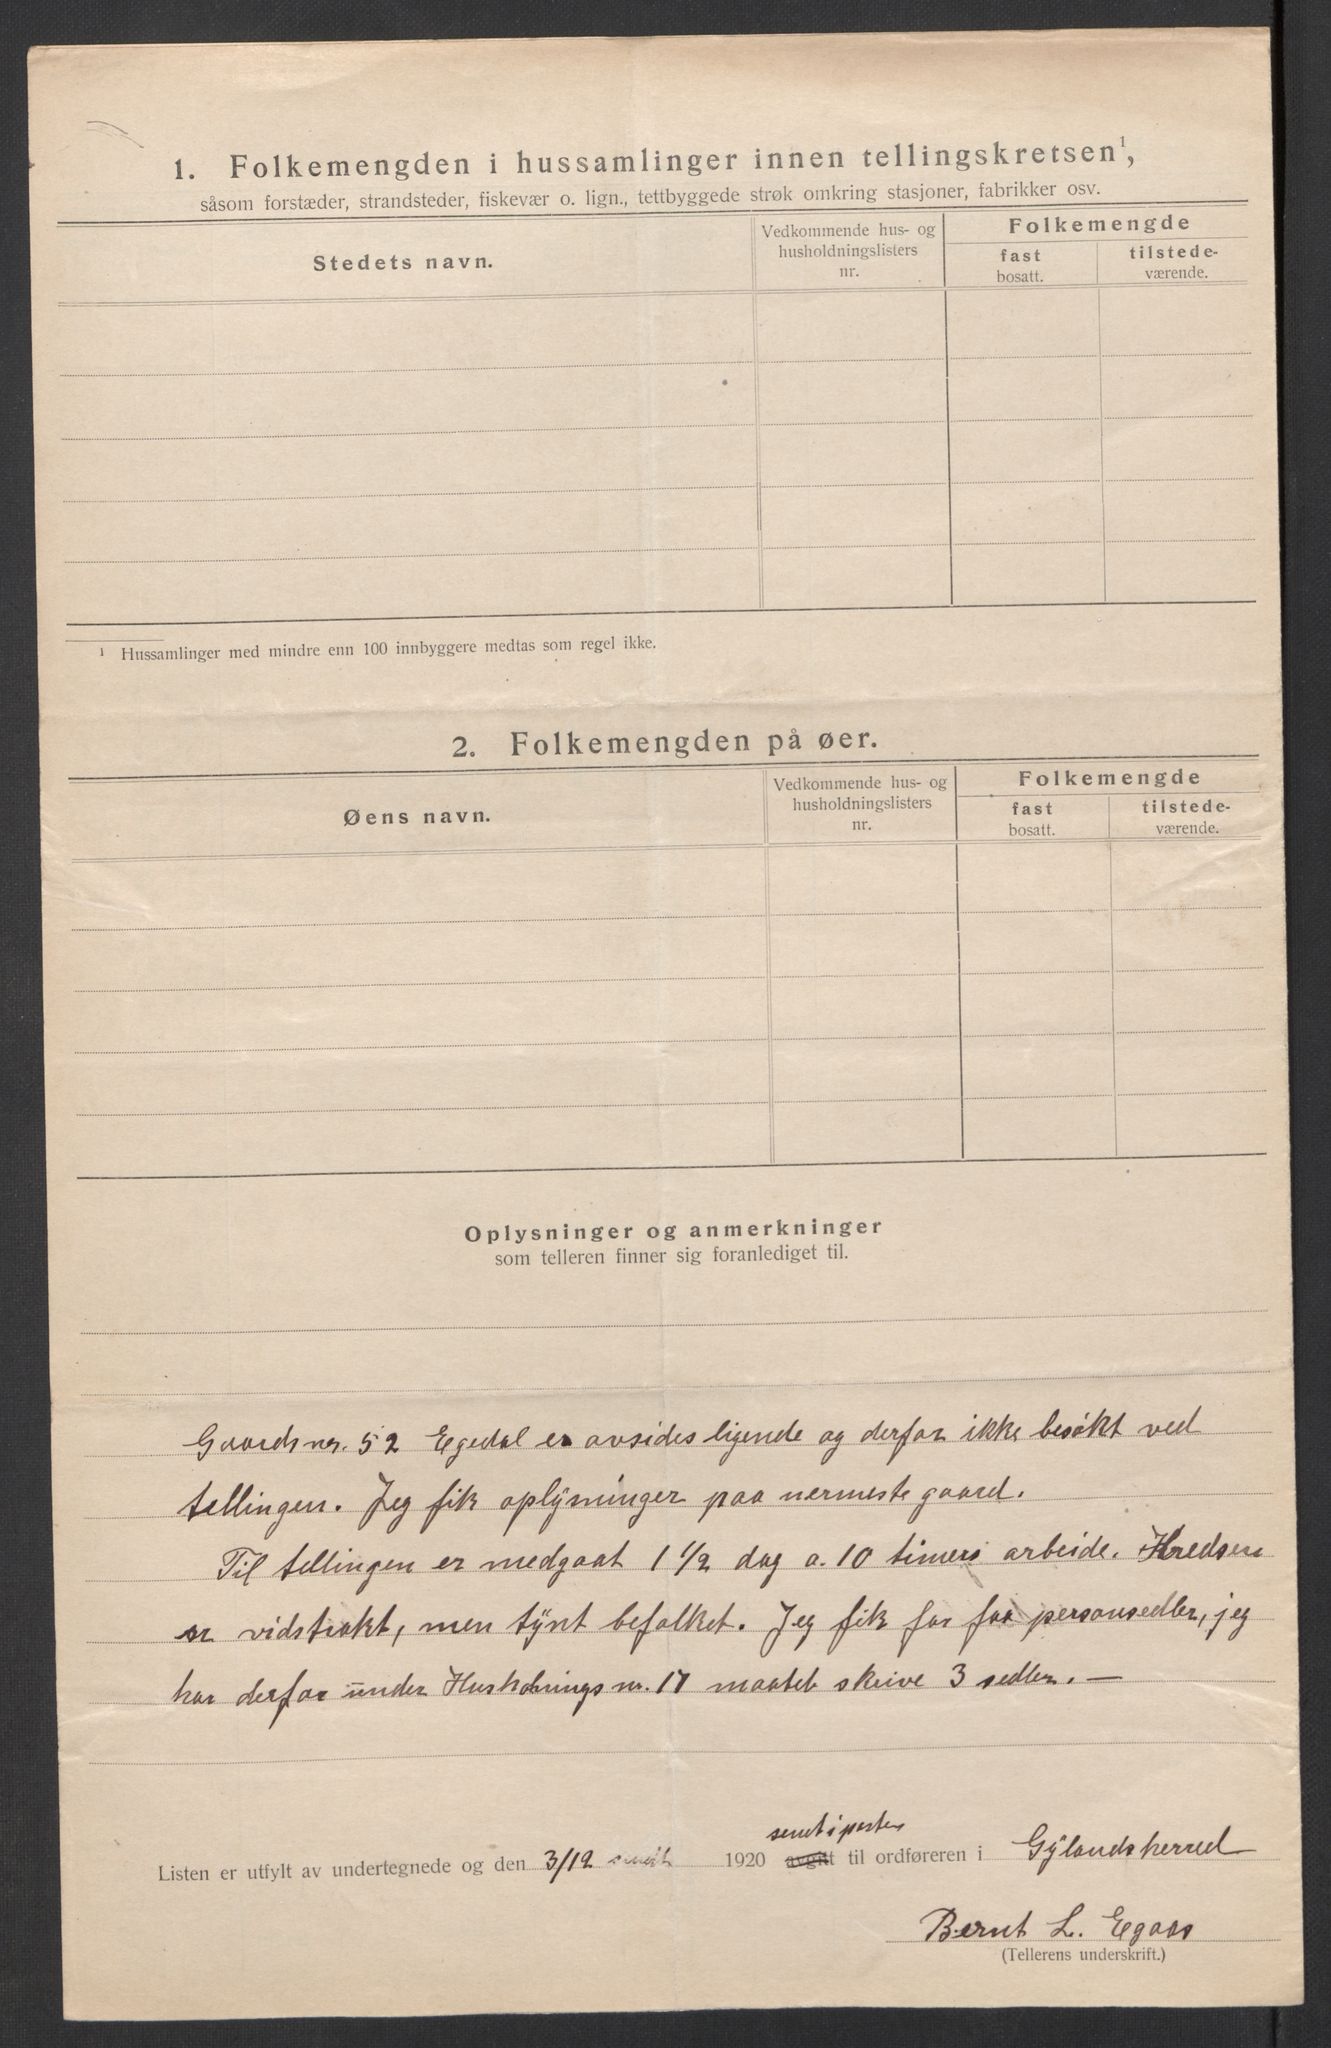 1. Folkemengden i hussamlinger innen tellingskretsen¹,
såsom forstæder, strandsteder, fiskevær o. lign., tettbyggede strøk omkring stasjoner, fabrikker osv.
Stedets navn.
Vedkommende hus- og
husholdningslisters
nr.
Folkemengde
fast
bosatt.
tilstede-
værende.
¹ Hussamlinger med mindre enn 100 innbyggere medtas som regel ikke.
2. Folkemengden på øer.
Øens navn.
Vedkommende hus- og
husholdningslisters
nr.
Folkemengde
fast
bosatt.
tilstede-
værende.
Oplysninger og anmerkninger
som telleren finner sig foranlediget til.
Gaardsnr. 52 Egedal er avsides ligende og derfor ikke besøkt ved
tellingen. Jeg fik oplysninger paa nermeste gaard.
Til tellingen er medgaat 1 1/2 dag a. 10 timers arbeide. Kredsen
er vidstrakt, men tynt befolket. Jeg fik for faa personsedler, jeg
har derfor under Husholdnings nr. 17 maatet skrive 3 sedler. —
sendt i posten
Listen er utfylt av undertegnede og den 3/12 sendt 1920 avgitt til ordføreren i Gylandsherred
Bernt L. Egaas
(Tellerens underskrift.)